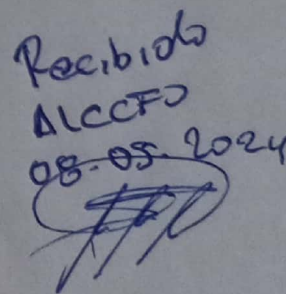 Recibido
ALCCFO
08-05-2024